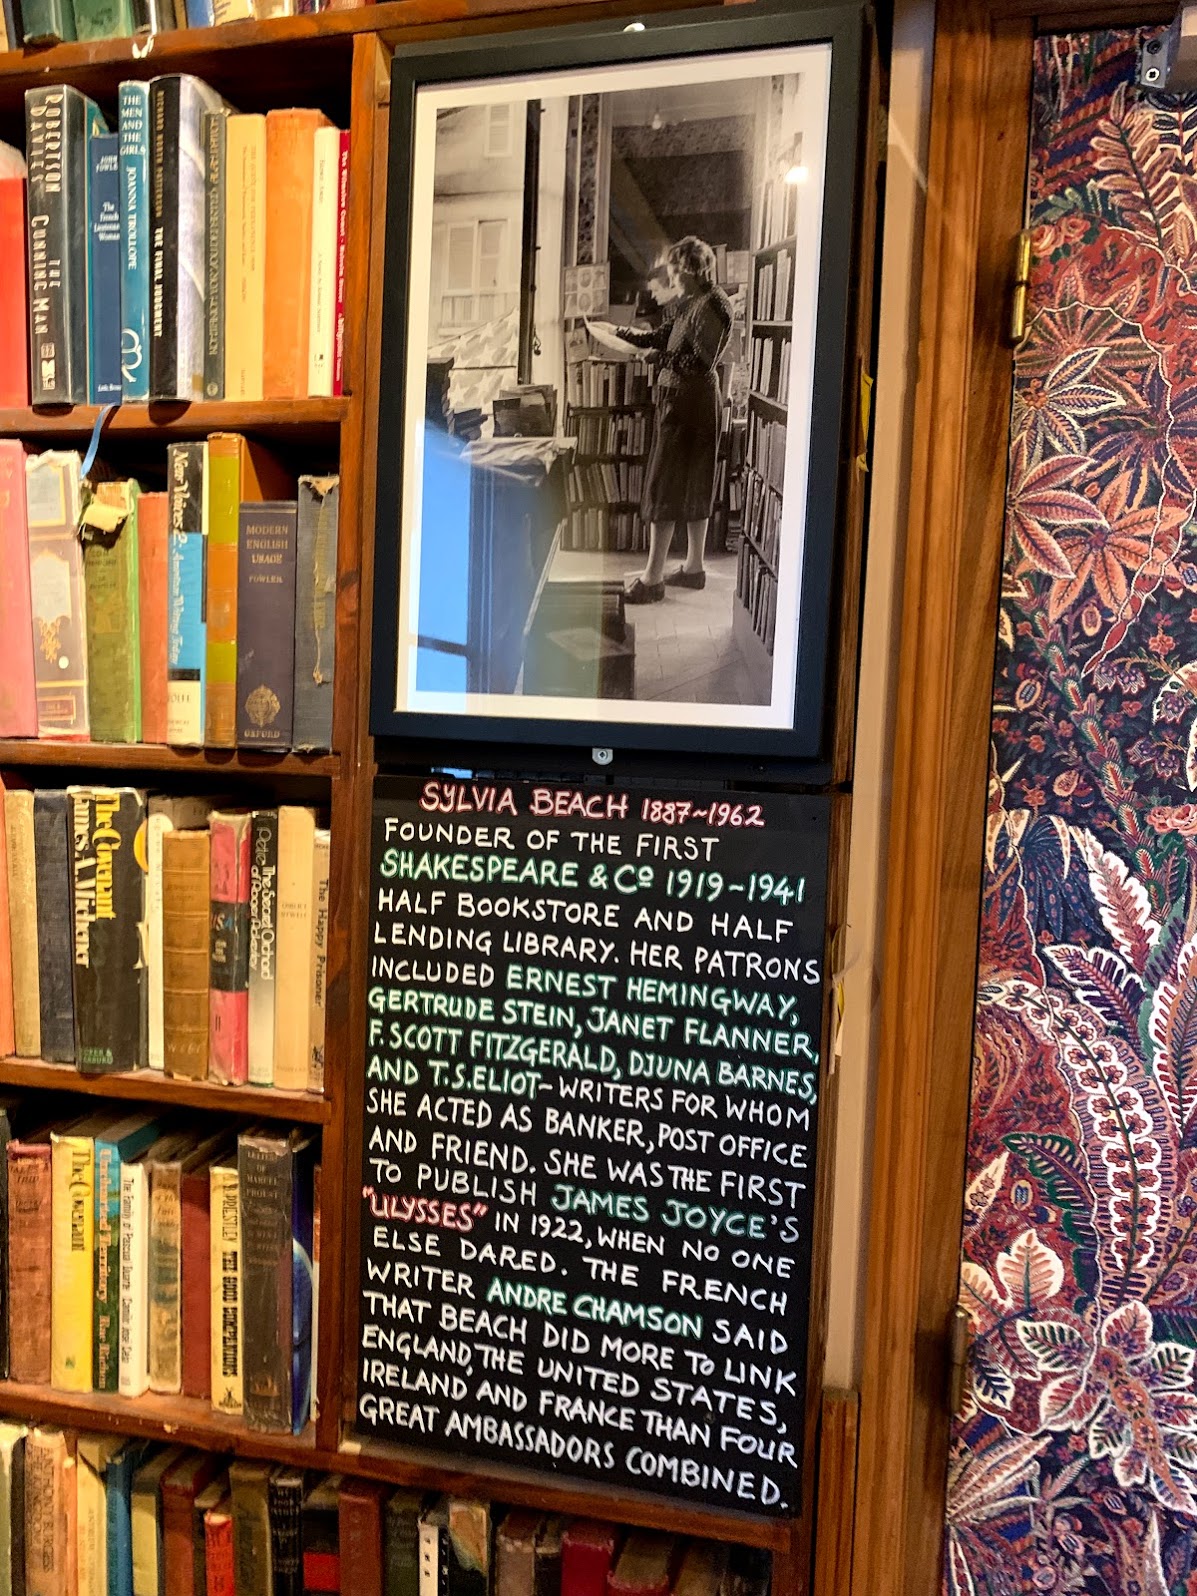 ROBERTSON DAVIES THE CUNNING MAN
JOHN FOWLES The French Lieutenant's Woman
THE MEN AND THE GIRLS JOANNA TROLLOPE
RICHARD NORTH PATTERSON THE FINAL JUDGMENT
MODERN
ENGLISH
USAGE
FOWLER
OXFORD
The Covenant
James A. Michener
The Second Orchard
The Happy Prisoner
The Covenant
The Family of Pascual Duarte Camilo José Cela
J.B. PRIESTLEY THE GOOD COMPANIONS
LETTERS OF MARCEL PROUST
SYLVIA BEACH 1887~1962
FOUNDER OF THE FIRST
SHAKESPEARE & Cº 1919~1941
HALF BOOKSTORE AND HALF
LENDING LIBRARY. HER PATRONS
INCLUDED ERNEST HEMINGWAY,
GERTRUDE STEIN, JANET FLANNER,
F. SCOTT FITZGERALD, DJUNA BARNES,
AND T.S. ELIOT~WRITERS FOR WHOM
SHE ACTED AS BANKER, POST OFFICE
AND FRIEND. SHE WAS THE FIRST
TO PUBLISH JAMES JOYCE'S
"ULYSSES" IN 1922, WHEN NO ONE
ELSE DARED. THE FRENCH
WRITER ANDRE CHAMSON SAID
THAT BEACH DID MORE To LINK
ENGLAND, THE UNITED STATES,
IRELAND AND FRANCE THAN FOUR
GREAT AMBASSADORS COMBINED.